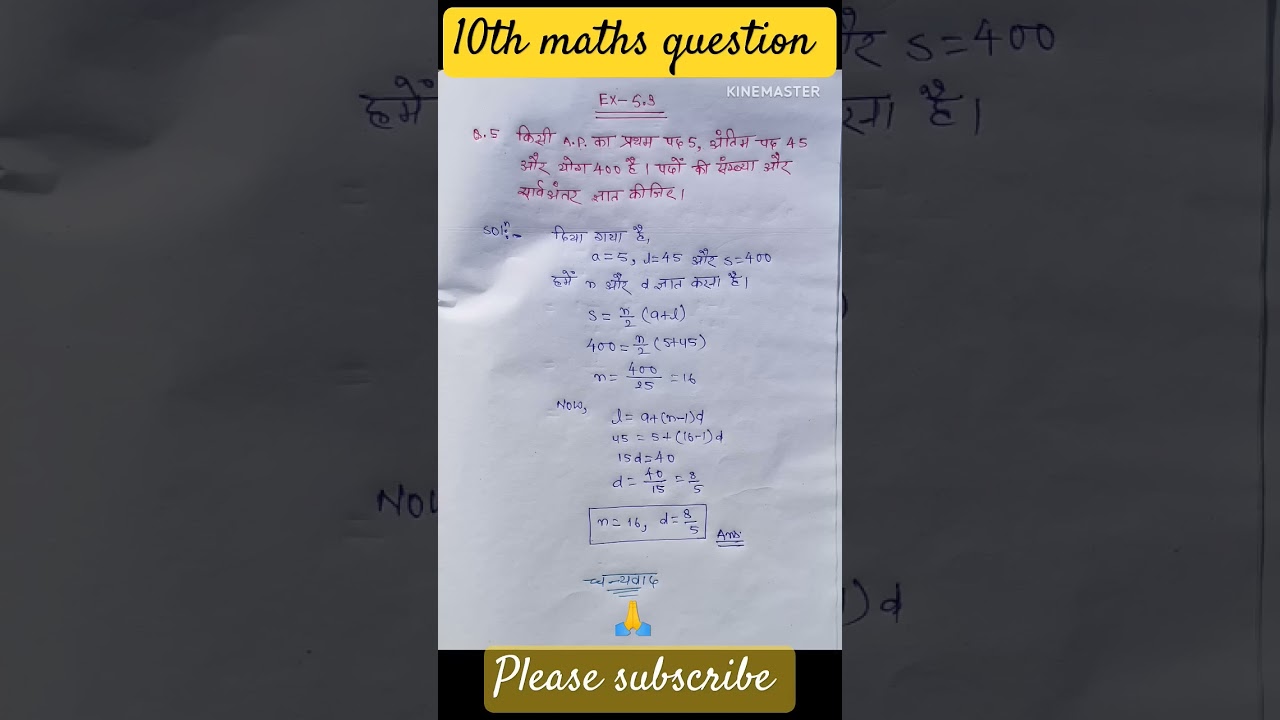 10th maths question
KINEMASTER
Ex-5.3
Q.5 किसी A.P. का प्रथम पद 5, अंतिम पद 45
और योग 400 है। पदों की संख्या और
सार्वअंतर ज्ञात कीजिए।
Solⁿ:- दिया गया है,
a=5, l=45 और s=400
हमें n और d ज्ञात करना है।
S = n/2 (a+l)
400 = n/2 (5+45)
n = 400/25 = 16
Now,
l = a+(n-1)d
45 = 5+(16-1)d
15d=40
d = 40/15 = 8/5
n=16, d=8/5
Ans
धन्यवाद
Please subscribe
और s=400
हमें
रना है।
Now
)d